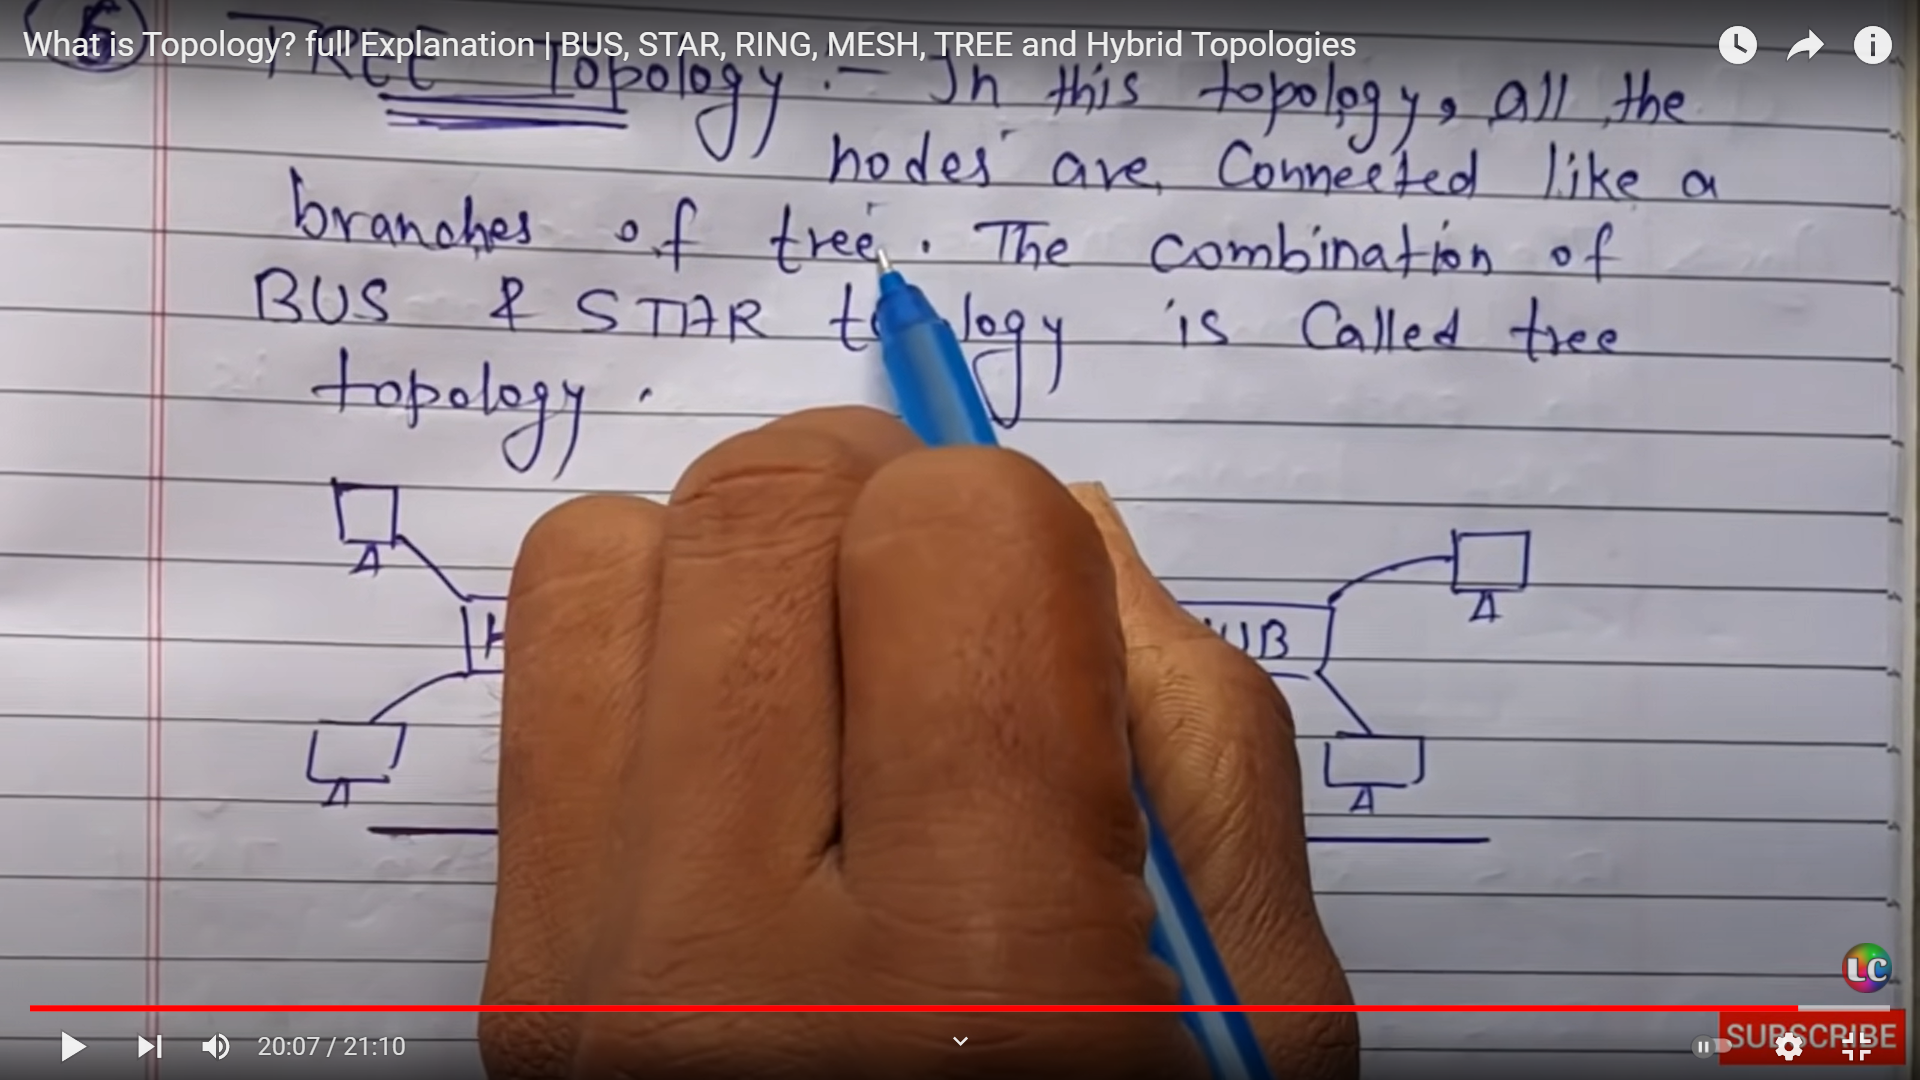 What is Topology? full Explanation | BUS, STAR, RING, MESH, TREE and Hybrid Topologies
TREE Topology :- In this topology, all the
nodes are Connected like a
branches of tree. The combination of
BUS & STAR is Called tree
topology.
LC
SUBSCRIBE
20:07 / 21:10